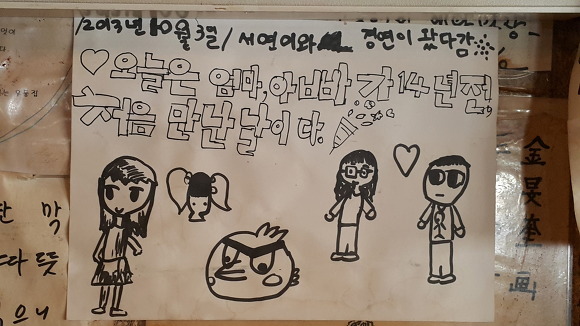 /2013년10월3일/ 서연이와 경연이 왔다감
♡오늘은 엄마,아빠가 14년전
처음 만난날이다.
막
뜻
으니
金
画